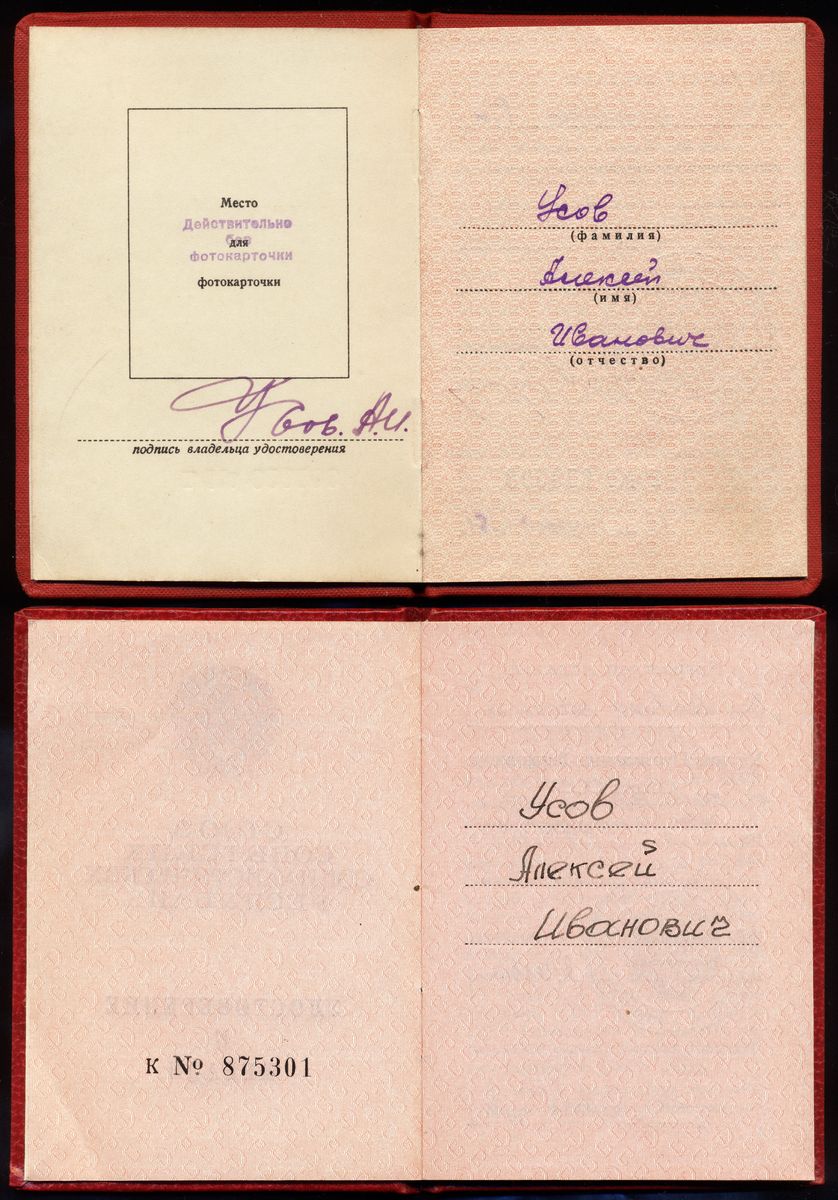 Место
Действительно
без
для
фотокарточки
фотокарточки
Усов. А.И.
подпись владельца удостоверения
Усов
(фамилия)
Алексей
(имя)
Иванович
(отчество)
К № 875301
Усов
Алексей
Иванович